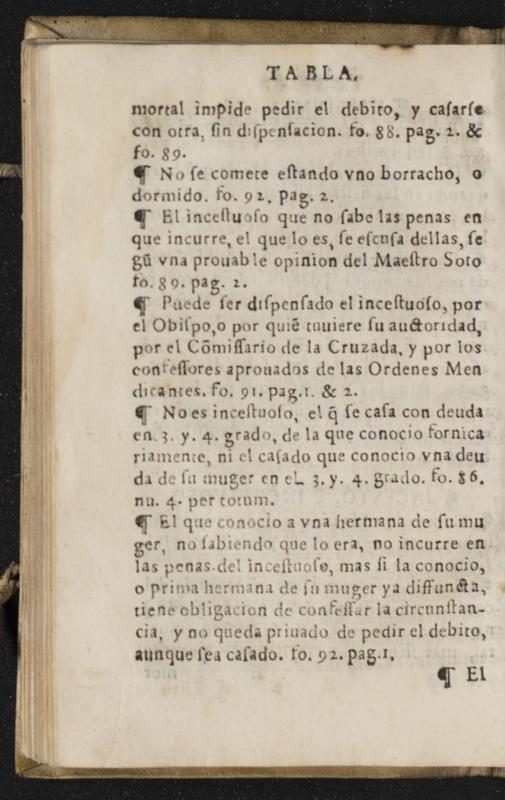 TABLA.
mortal impide pedir el debito, y casarse
con otra, sin dispensacion. fo. 88. pag. 2. &
fo. 89.
¶ No se comete estando vno borracho, o
dormido. fo. 92. pag. 2.
¶ El incestuoso que no sabe las penas en
que incurre, el que lo es, se escusa dellas, se
gũ vna prouable opinion del Maestro Soto
fo. 89. pag. 2.
¶ Puede ser dispensado el incestuoso, por
el Obispo, o por quiẽ tuuiere su auctoridad,
por el Cõmissario de la Cruzada, y por los
confessores aprouados de las Ordenes Men
dicantes. fo. 91. pag. 1. & 2.
¶ No es incestuoso, el q̃ se casa con deuda
en. 3. y. 4. grado, de la que conocio fornica
riamente, ni el casado que conocio vna deu
da de su muger en el. 3. y. 4. grado. fo. 86.
nu. 4. per totum.
¶ El que conocio a vna hermana de su mu
ger, no sabiendo que lo era, no incurre en
las penas del incestuoso, mas si la conocio,
o prima hermana de su muger ya diffuncta,
tiene obligacion de confessar la circunstan-
cia, y no queda priuado de pedir el debito,
aunque sea casado. fo. 92. pag. 1.
¶ El